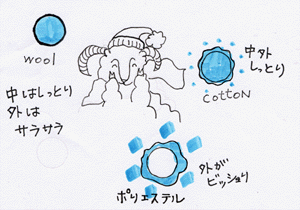 wool
中はしっとり
外は
サラサラ
中外
しっとり
COTTON
外が
ビッショリ
ポリエステル